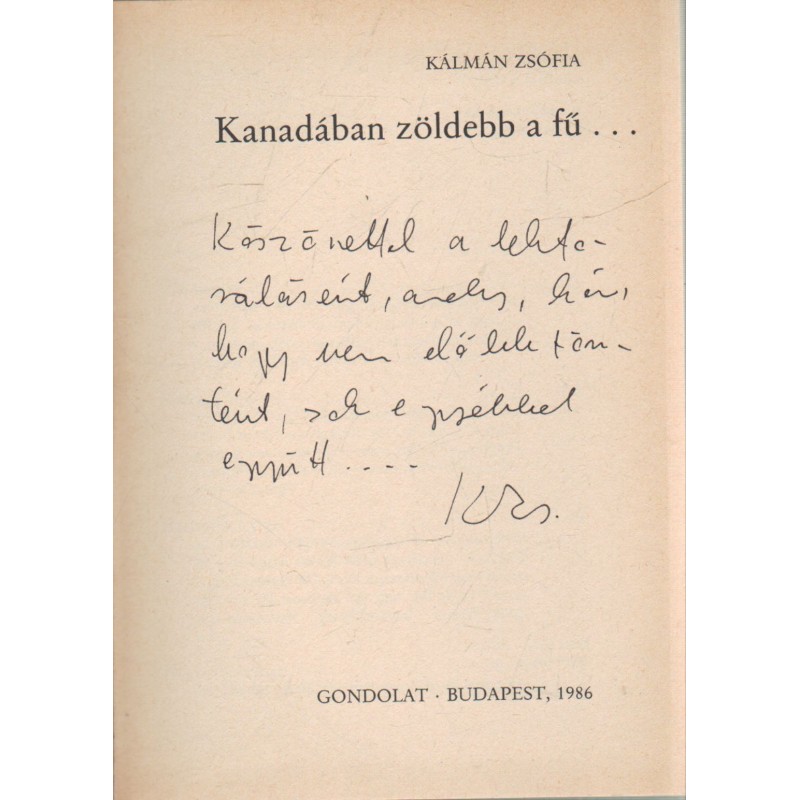 KÁLMÁN ZSÓFIA
Kanadában zöldebb a fű...
Köszönettel a lekto-
rálásért, amely, kár,
hogy nem előbb tör-
tént, sok egyébbel
együtt....
KZs.
GONDOLAT · BUDAPEST, 1986